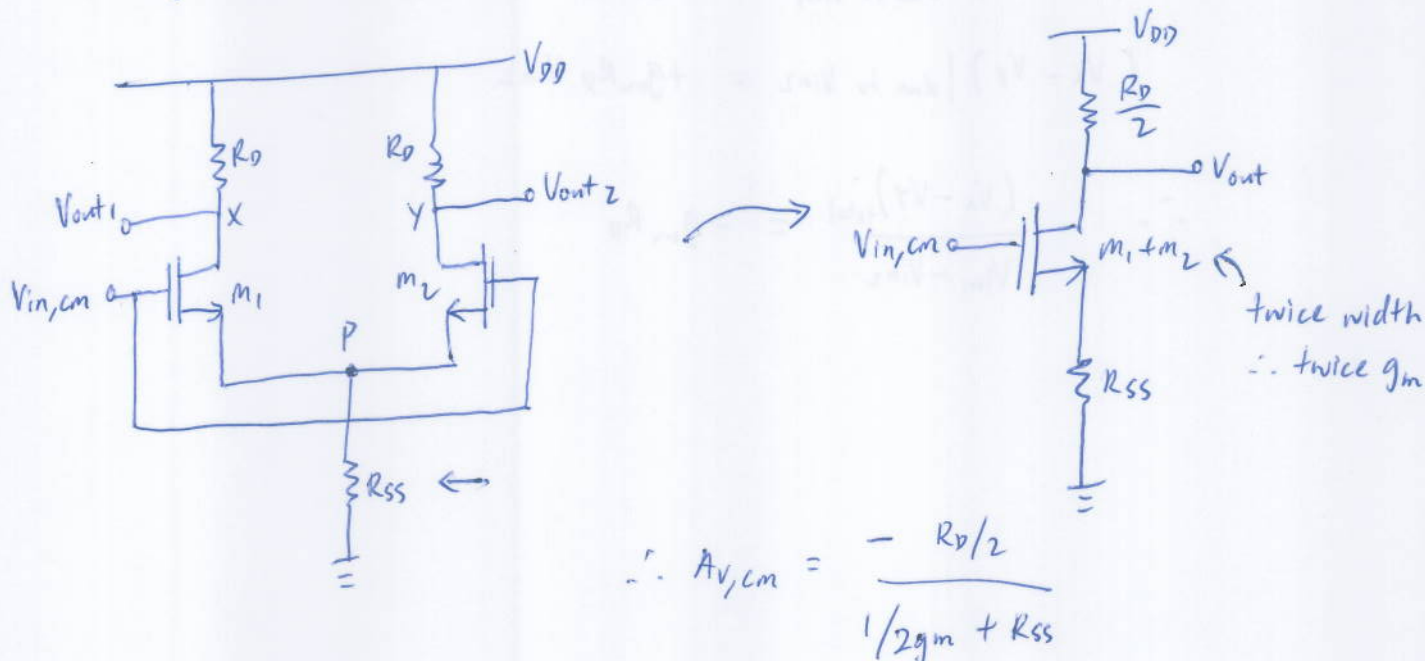 VDD
RD
RD
Vout1
X
Y
Vout2
Vin,cm
M1
M2
P
RSS
VDD
RD/2
Vout
Vin,cm
M1+M2
twice width
∴ twice gm
RSS
∴ Av,cm = - RD/2 / 1/2gm + RSS